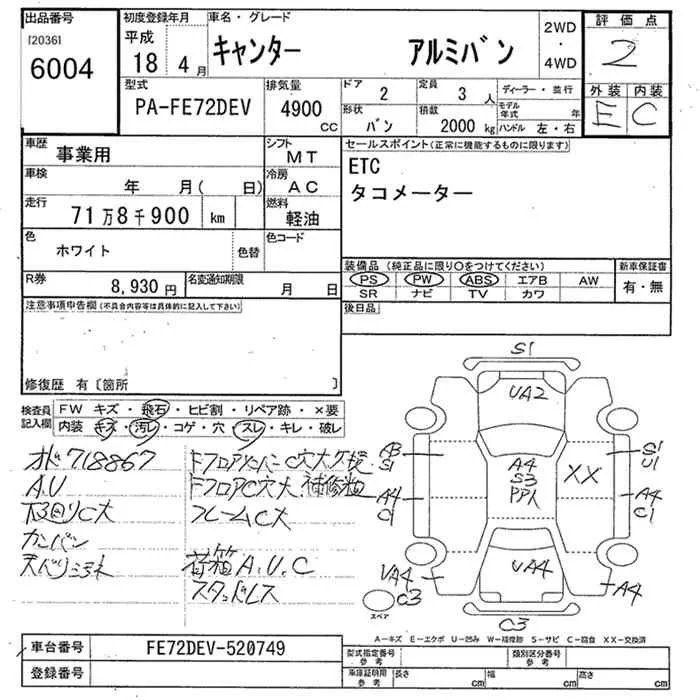 出品番号
[2036]
6004
初度登録年月
平成
18 4月
車名・グレード
キャンター アルミバン
2WD
・
4WD
評価点
2
外装 内装
E C
型式
PA-FE72DEV
排気量
4900
cc
ドア
2
定員
3 人
形状
バン
積数
2000 kg
ディーラー・並行
モデル年式 年
ハンドル 左・右
車歴
事業用
シフト
MT
車検
年 月( 日)
冷房
AC
走行
71万8千900 km
燃料
軽油
色
ホワイト
色替
色コード
R券
8,930円
名変通知期限
月 日
セールスポイント(正常に機能するものに限ります)
ETC
タコメーター
装備品(純正品に限り〇をつけてください)
PS PW ABS エアB AW
SR ナビ TV カワ
新車保証書
有・無
後日品
注意事項申告欄(不具合内容等は具体的に記入して下さい)
修復歴 有〔箇所 〕
検査員記入欄
FW キズ・飛石・ヒビ割・リペア跡・×要
内装・キズ・汚レ・コゲ・穴・スレ・キレ・破レ
オド718867
A.U
下廻りC大
カンバン
天バリ汚れ
FフロアC穴大、補修粗
フレームC大
荷箱A.U.C
スタッドレス
S1
UA2
AB
S1
A4
S3
PP人
XX
S1
U1
A4
C1
A4
C1
UA4
UA4
A4
C3
スペア
C3
A-キズ E-エクボ U-凹み W-補修跡 S-サビ C-腐食 XX-交換済
車台番号
FE72DEV-520749
登録番号
型式指定番号
参考
類別区分番号
参考
車庫証明用
参考
長さ cm 幅 cm 高さ cm